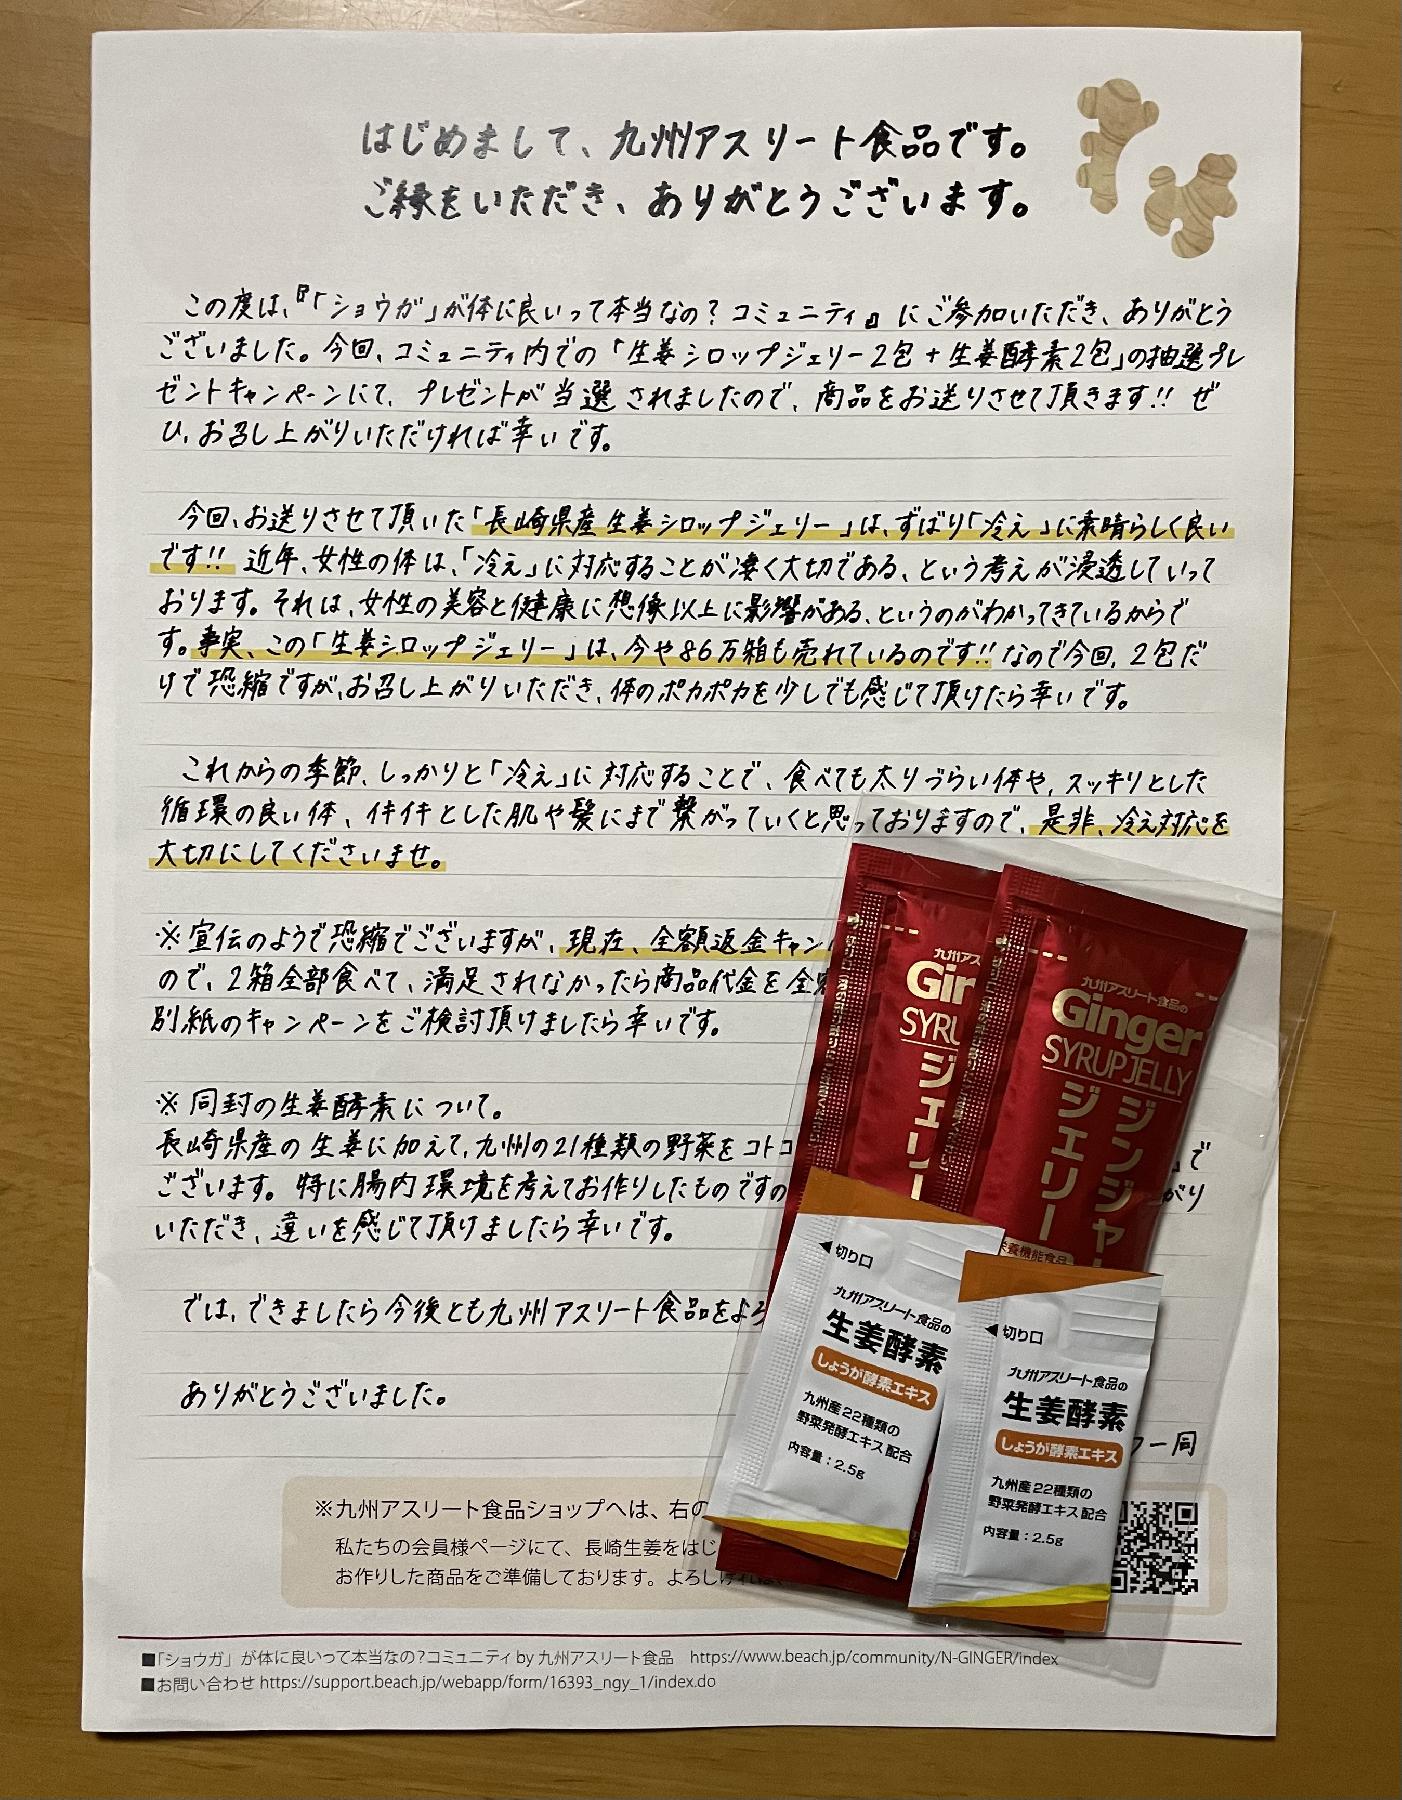 はじめまして、九州アスリート食品です。
ご縁をいただき、ありがとうございます。
この度は、『「ショウガ」が体に良いって本当なの?コミュニティ』にご参加いただき、ありがとう
ございました。今回、コミュニティ内での「生姜シロップジェリー2包+生姜酵素2包」の抽選プレ
ゼントキャンペーンにて、プレゼントが当選されましたので、商品をお送りさせて頂きます!! ぜ
ひ、お召し上がりいただければ幸いです。
今回、お送りさせて頂いた「長崎県産生姜シロップジェリー」は、ずばり「冷え」に素晴らしく良い
です!! 近年、女性の体は、「冷え」に対応することが凄く大切である、という考えが浸透していって
おります。それは、女性の美容と健康に想像以上に影響がある、というのがわかってきているからで
す。事実、この「生姜シロップジェリー」は、今や86万箱も売れているのです!! なので今回、2包だ
けで恐縮ですが、お召し上がりいただき、体のポカポカを少しでも感じて頂けたら幸いです。
これからの季節、しっかりと「冷え」に対応することで、食べても太りづらい体や、スッキリとした
循環の良い体、イキイキとした肌や髪にまで繋がっていくと思っておりますので、是非、冷え対応を
大切にしてくださいませ。
※宣伝のようで恐縮でございますが、現在、全額返金キャン
ので、2箱全部食べて、満足されなかったら商品代金を全
別紙のキャンペーンをご検討頂けましたら幸いです。
※同封の生姜酵素について。
長崎県産の生姜に加えて、九州の21種類の野菜をコトコ
」で
ございます。特に腸内環境を考えてお作りしたものですの
がり
いただき、違いを感じて頂けましたら幸いです。
では、できましたら今後とも九州アスリート食品をよろ
ありがとうございました。
フ一同
※九州アスリート食品ショップへは、右の
私たちの会員様ページにて、長崎生姜をはじ
お作りした商品をご準備しております。よろし
■「ショウガ」が体に良いって本当なの?コミュニティ by 九州アスリート食品 https://www.beach.jp/community/N-GINGER/index
■お問い合わせ https://support.beach.jp/webapp/form/16393_ngy_1/index.do
九州アス
Gin
SYRU
ジェリー
九州アスリート食品の
Ginger
SYRUP JELLY
ジンジャー
ジェリー
栄養機能食品
◀切り口
九州アスリート食品の
生姜酵素
しょうが酵素エキス
九州産22種類の
野菜発酵エキス配合
内容量:2.5g
◀切り口
九州アスリート食品の
生姜酵素
しょうが酵素エキス
九州産22種類の
野菜発酵エキス配合
内容量:2.5g